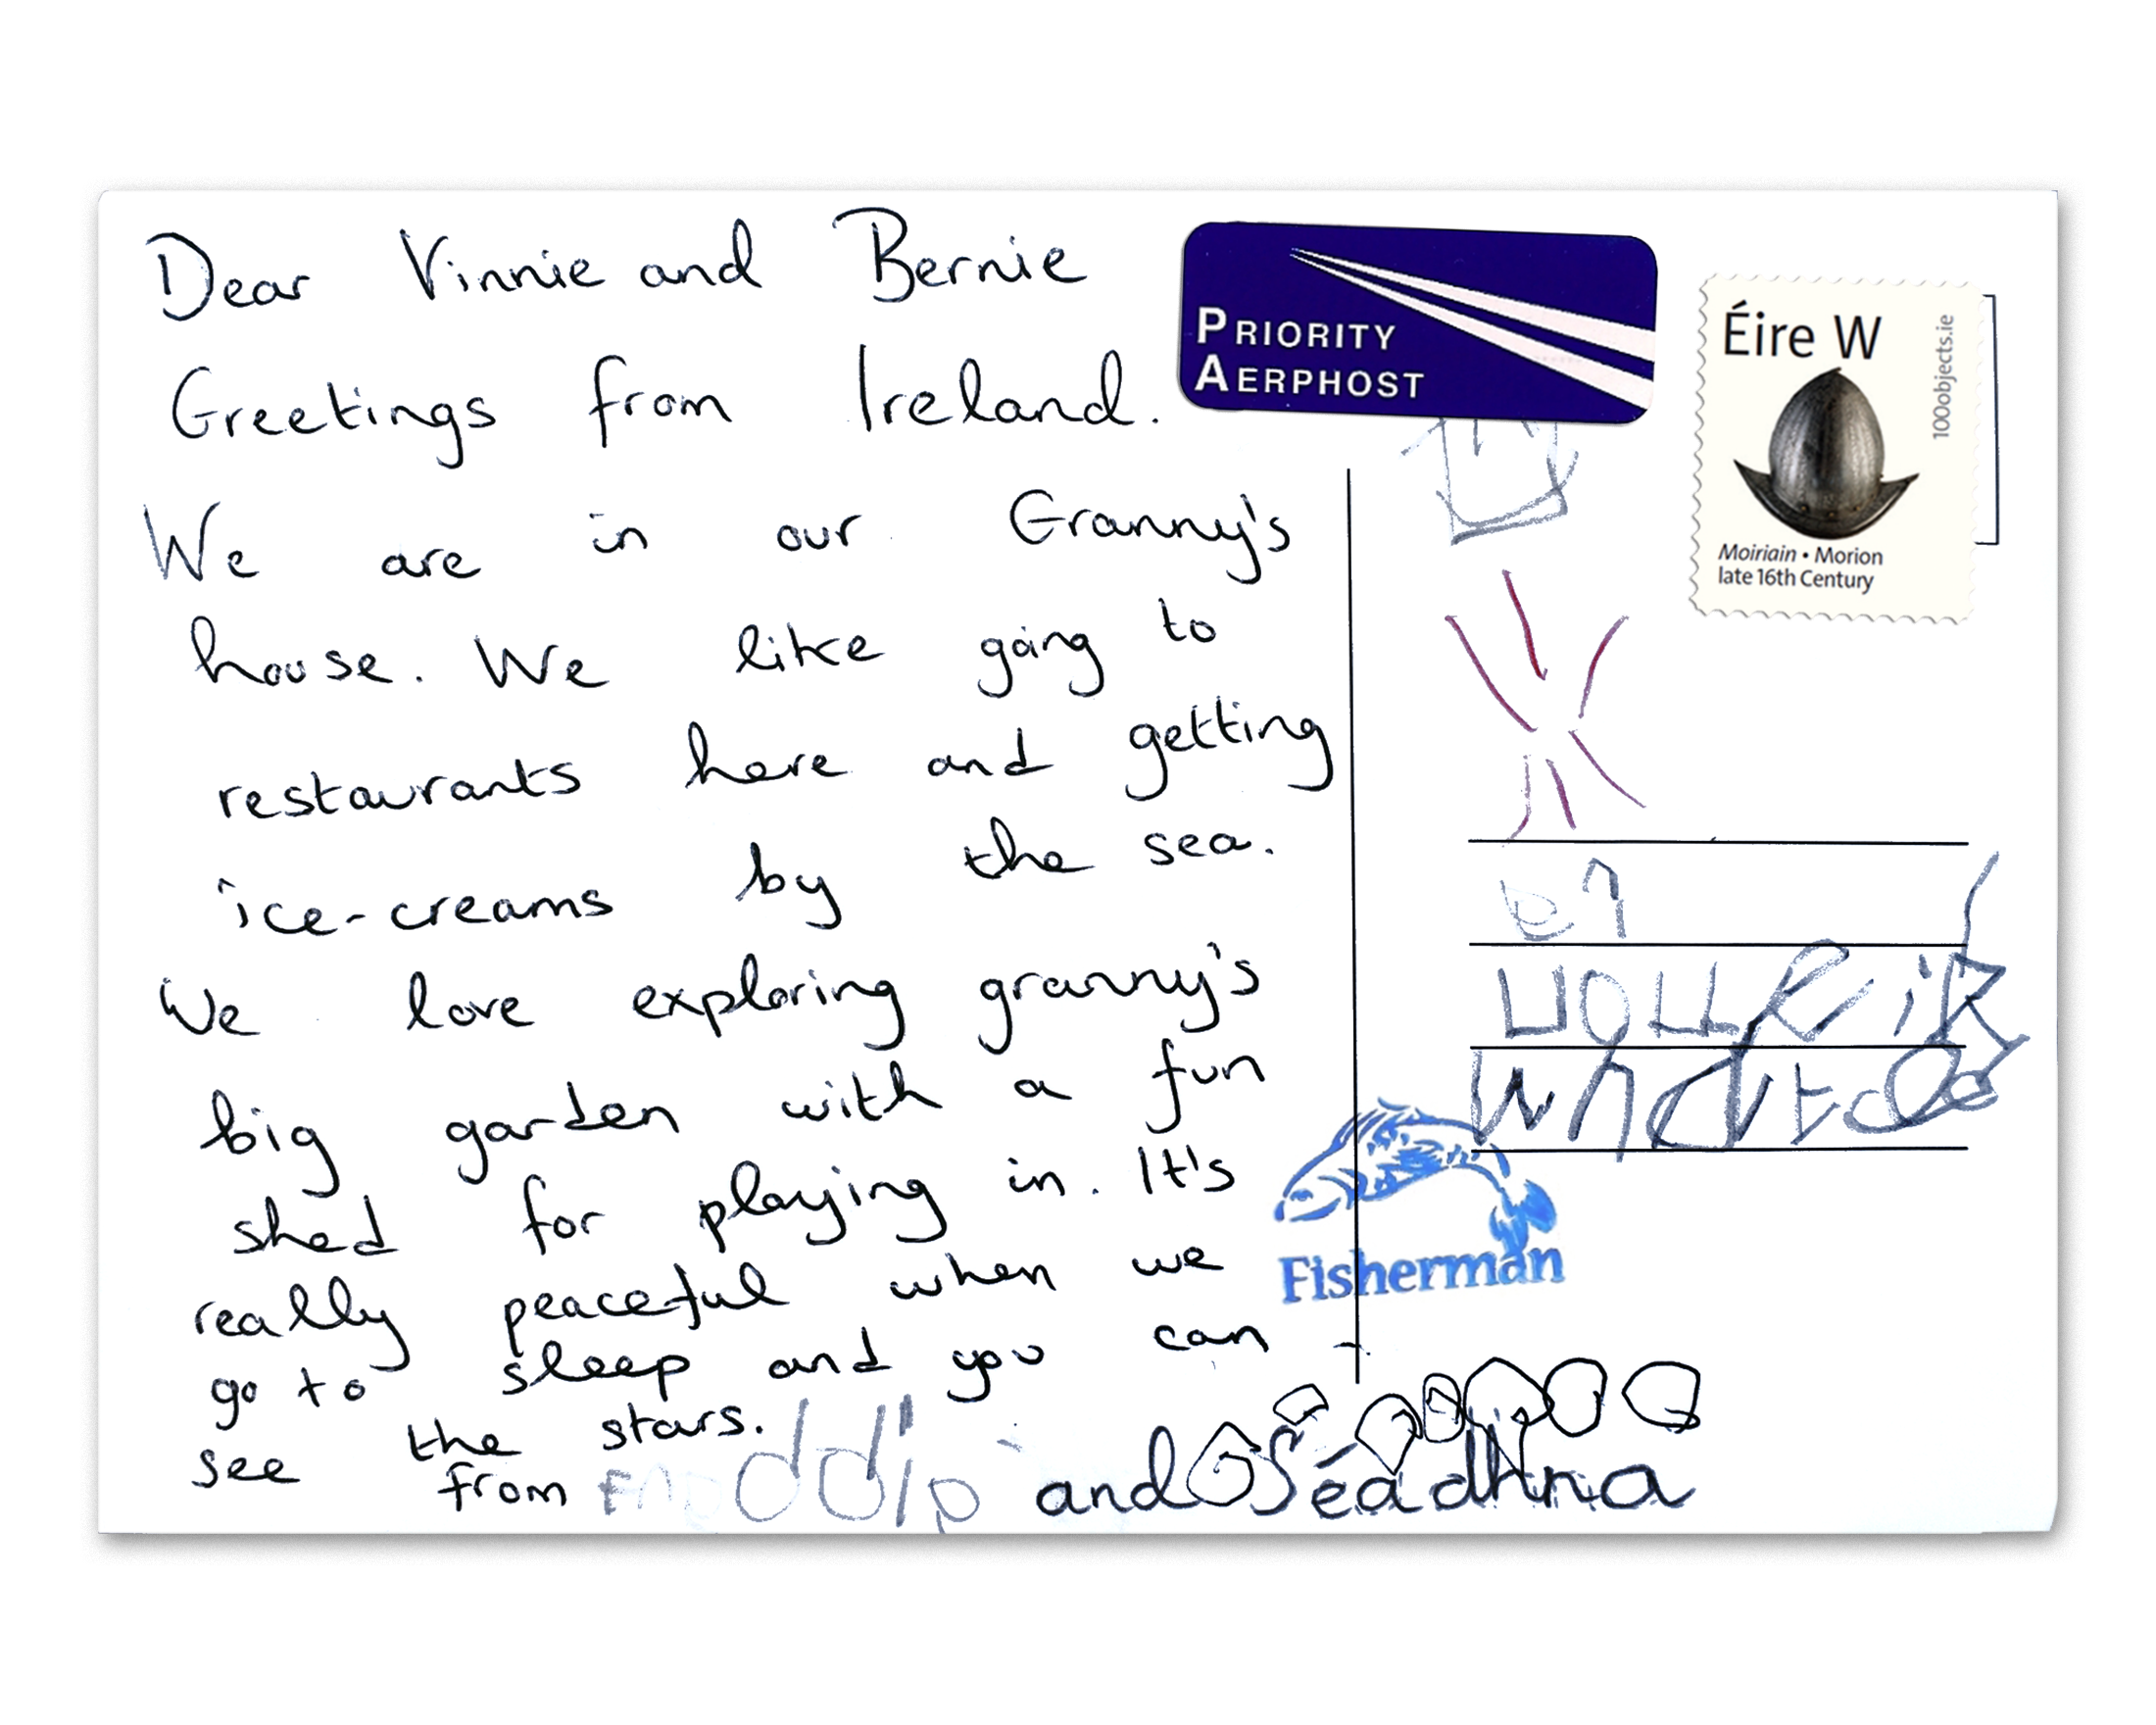 Dear Vinnie and Bernie
Greetings from Ireland.
We are in our Granny's
house. We like going to
restaurants here and getting
ice-creams by the sea.
We love exploring granny's
big garden with a fun
shed for playing in. It's
really peaceful when we
go to sleep and you can
see the stars.
from and Séadhna
PRIORITY
AERPHOST
Éire W
100objects.ie
Moiriain • Morion
late 16th Century
Fisherman